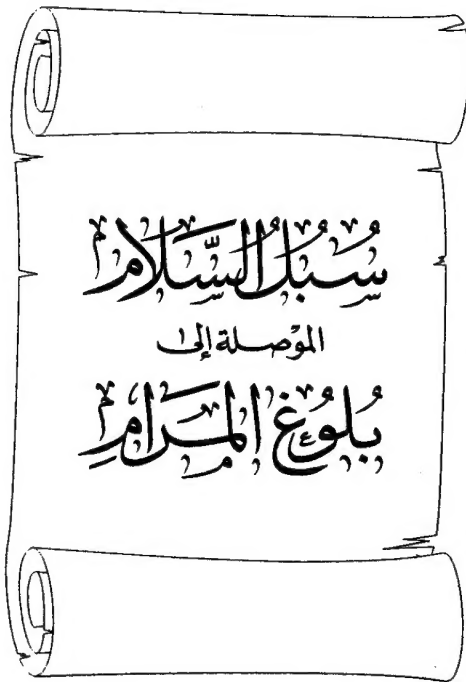 سُبُلُ السَّلَامِ
المُوْصِلَة إِلَىٰ
بُلُوغِ المَرَامِ